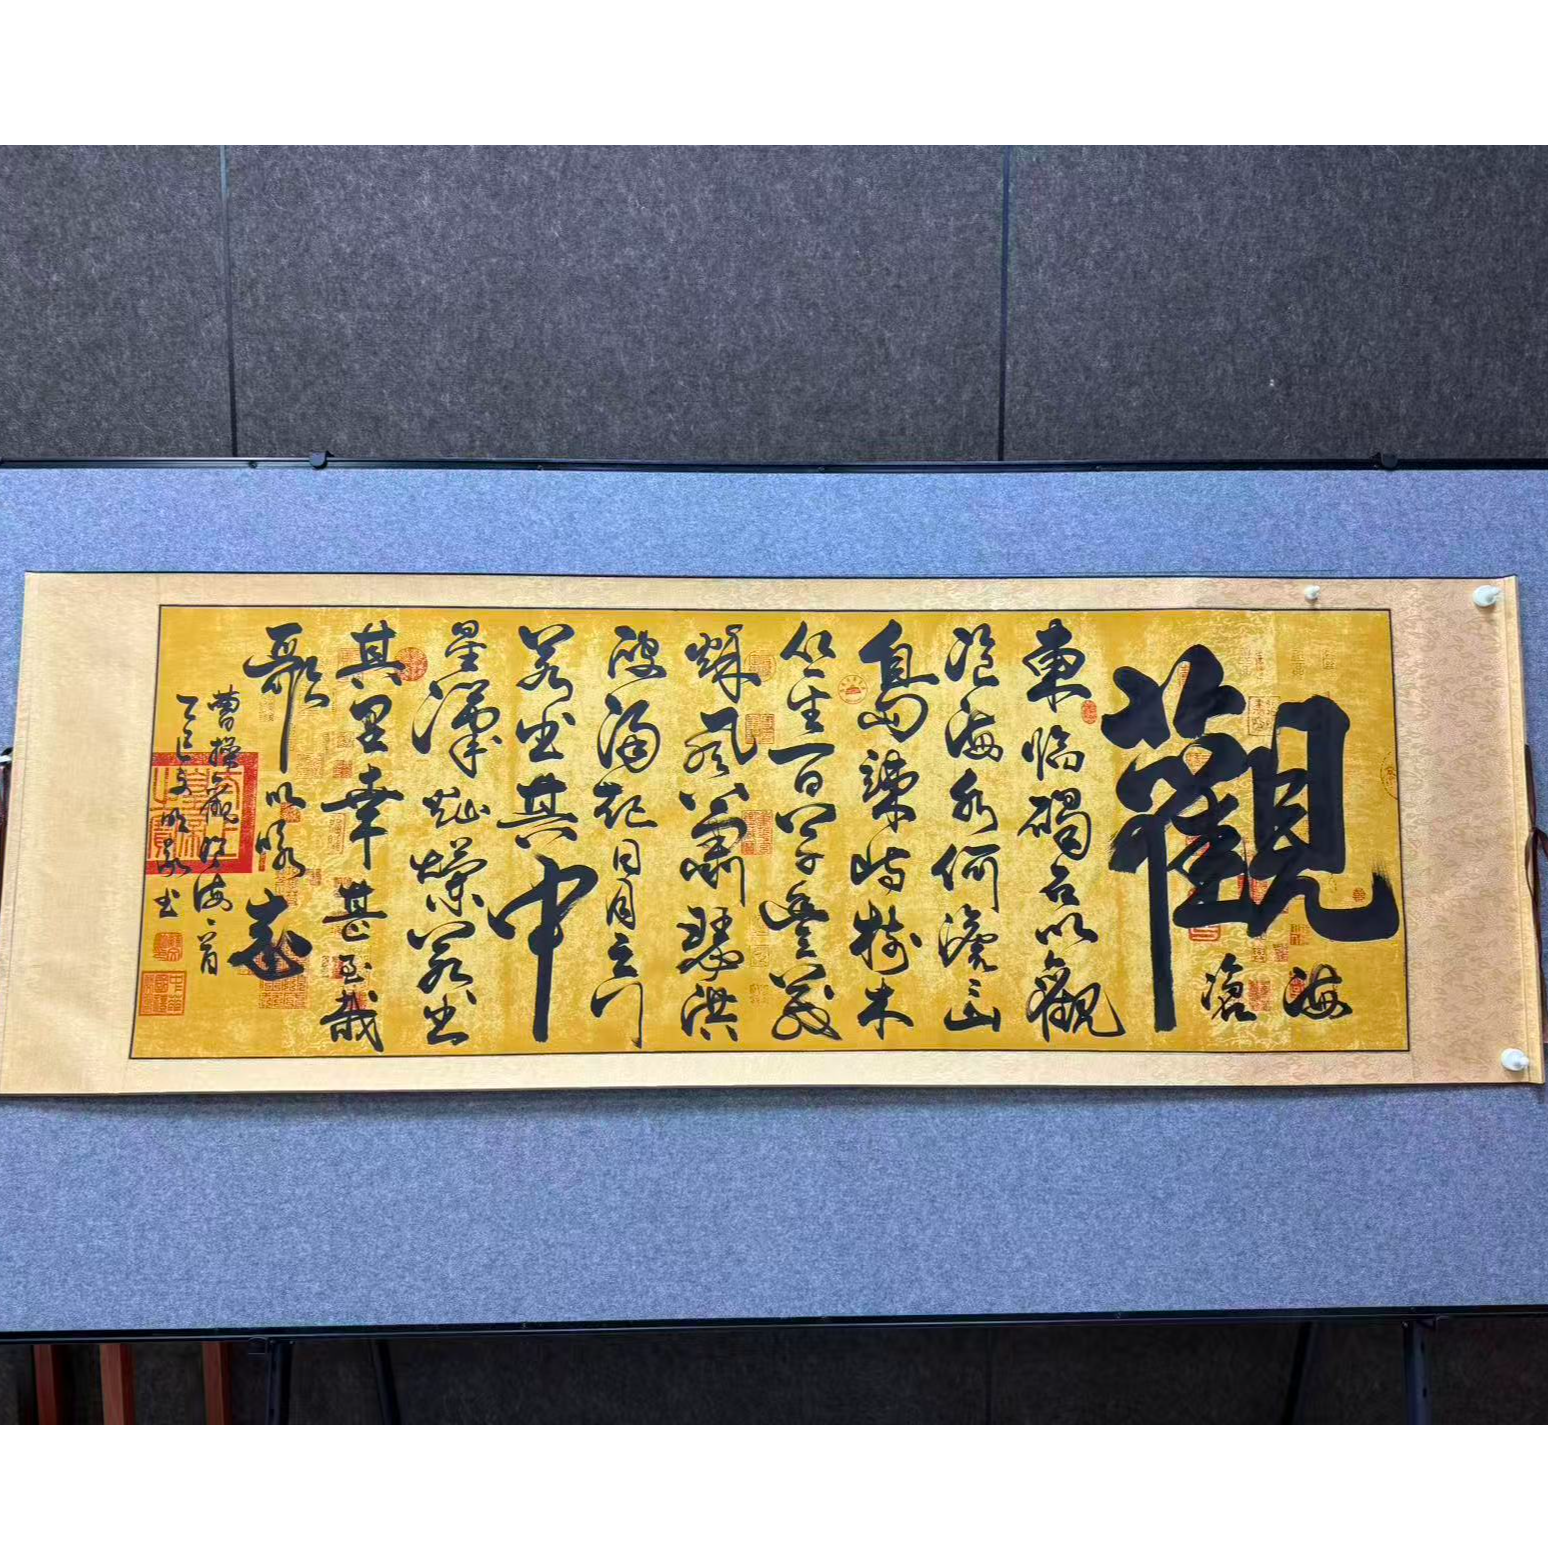 觀
滄海
東临碣石以觀
滄海水何澹澹山
島竦峙樹木
丛生百草豐茂
秋風蕭瑟洪
波涌起日月之行
若出其中
星漢灿爛若出
其里幸甚至哉
歌以咏志
曹操觀滄海一首
乙巳文明书